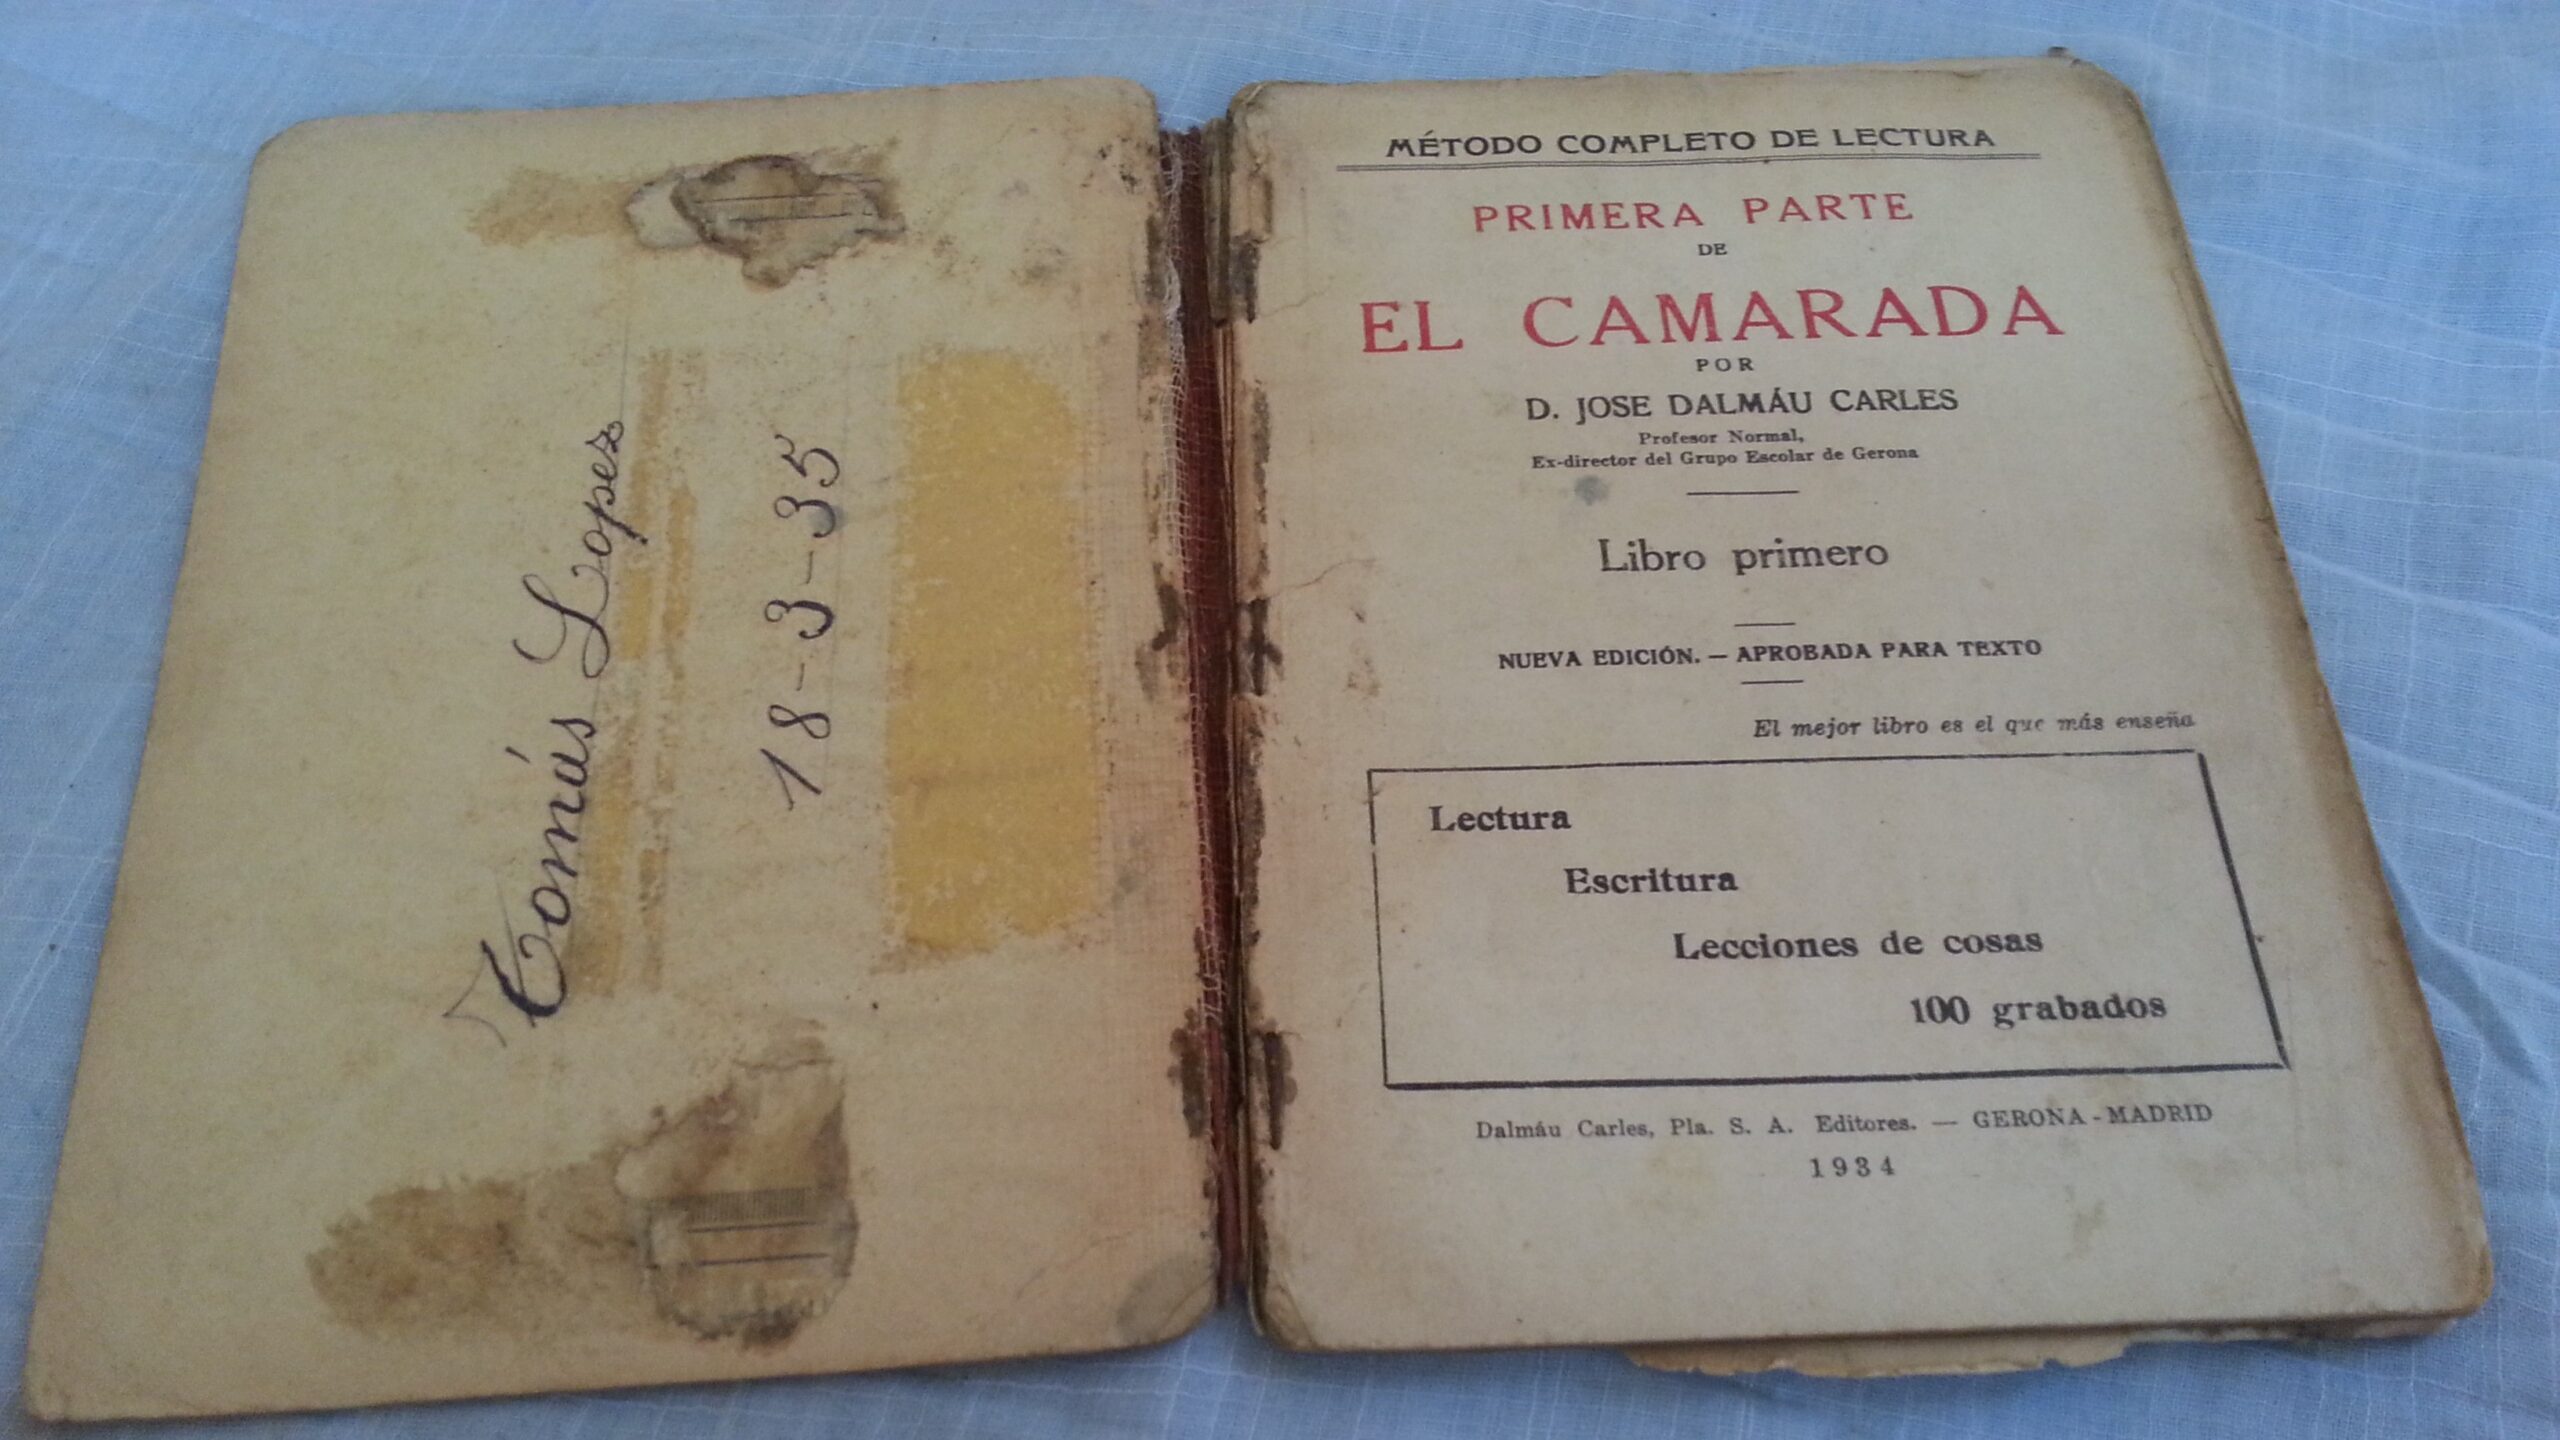 Tomás Lopez
18-3-35
MÉTODO COMPLETO DE LECTURA
PRIMERA PARTE
DE
EL CAMARADA
POR
D. JOSE DALMÁU CARLES
Profesor Normal,
Ex-director del Grupo Escolar de Gerona
Libro primero
NUEVA EDICIÓN. — APROBADA PARA TEXTO
El mejor libro es el que más enseña
Lectura
Escritura
Lecciones de cosas
100 grabados
Dalmáu Carles, Pla. S. A. Editores. — GERONA - MADRID
1934